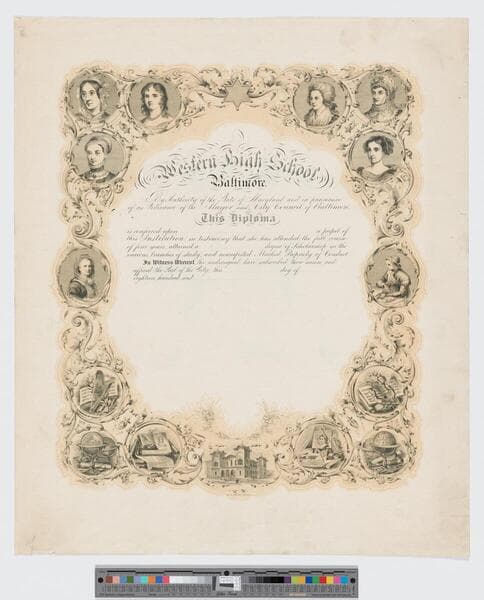 Western High School
Baltimore.
By Authority of the State of Maryland and in pursuance
of an Ordinance of the Mayor and City Council of Baltimore.
This Diploma
is conferred upon a pupil of
this Institution in testimony that she has attended the full course
of four years, attained a degree of Scholarship in the
various branches of study, and manifested Marked Propriety of Conduct
In Witness Whereof, the undersigned have subscribed their names and
affixed the Seal of the City, this day of
eighteen hundred and